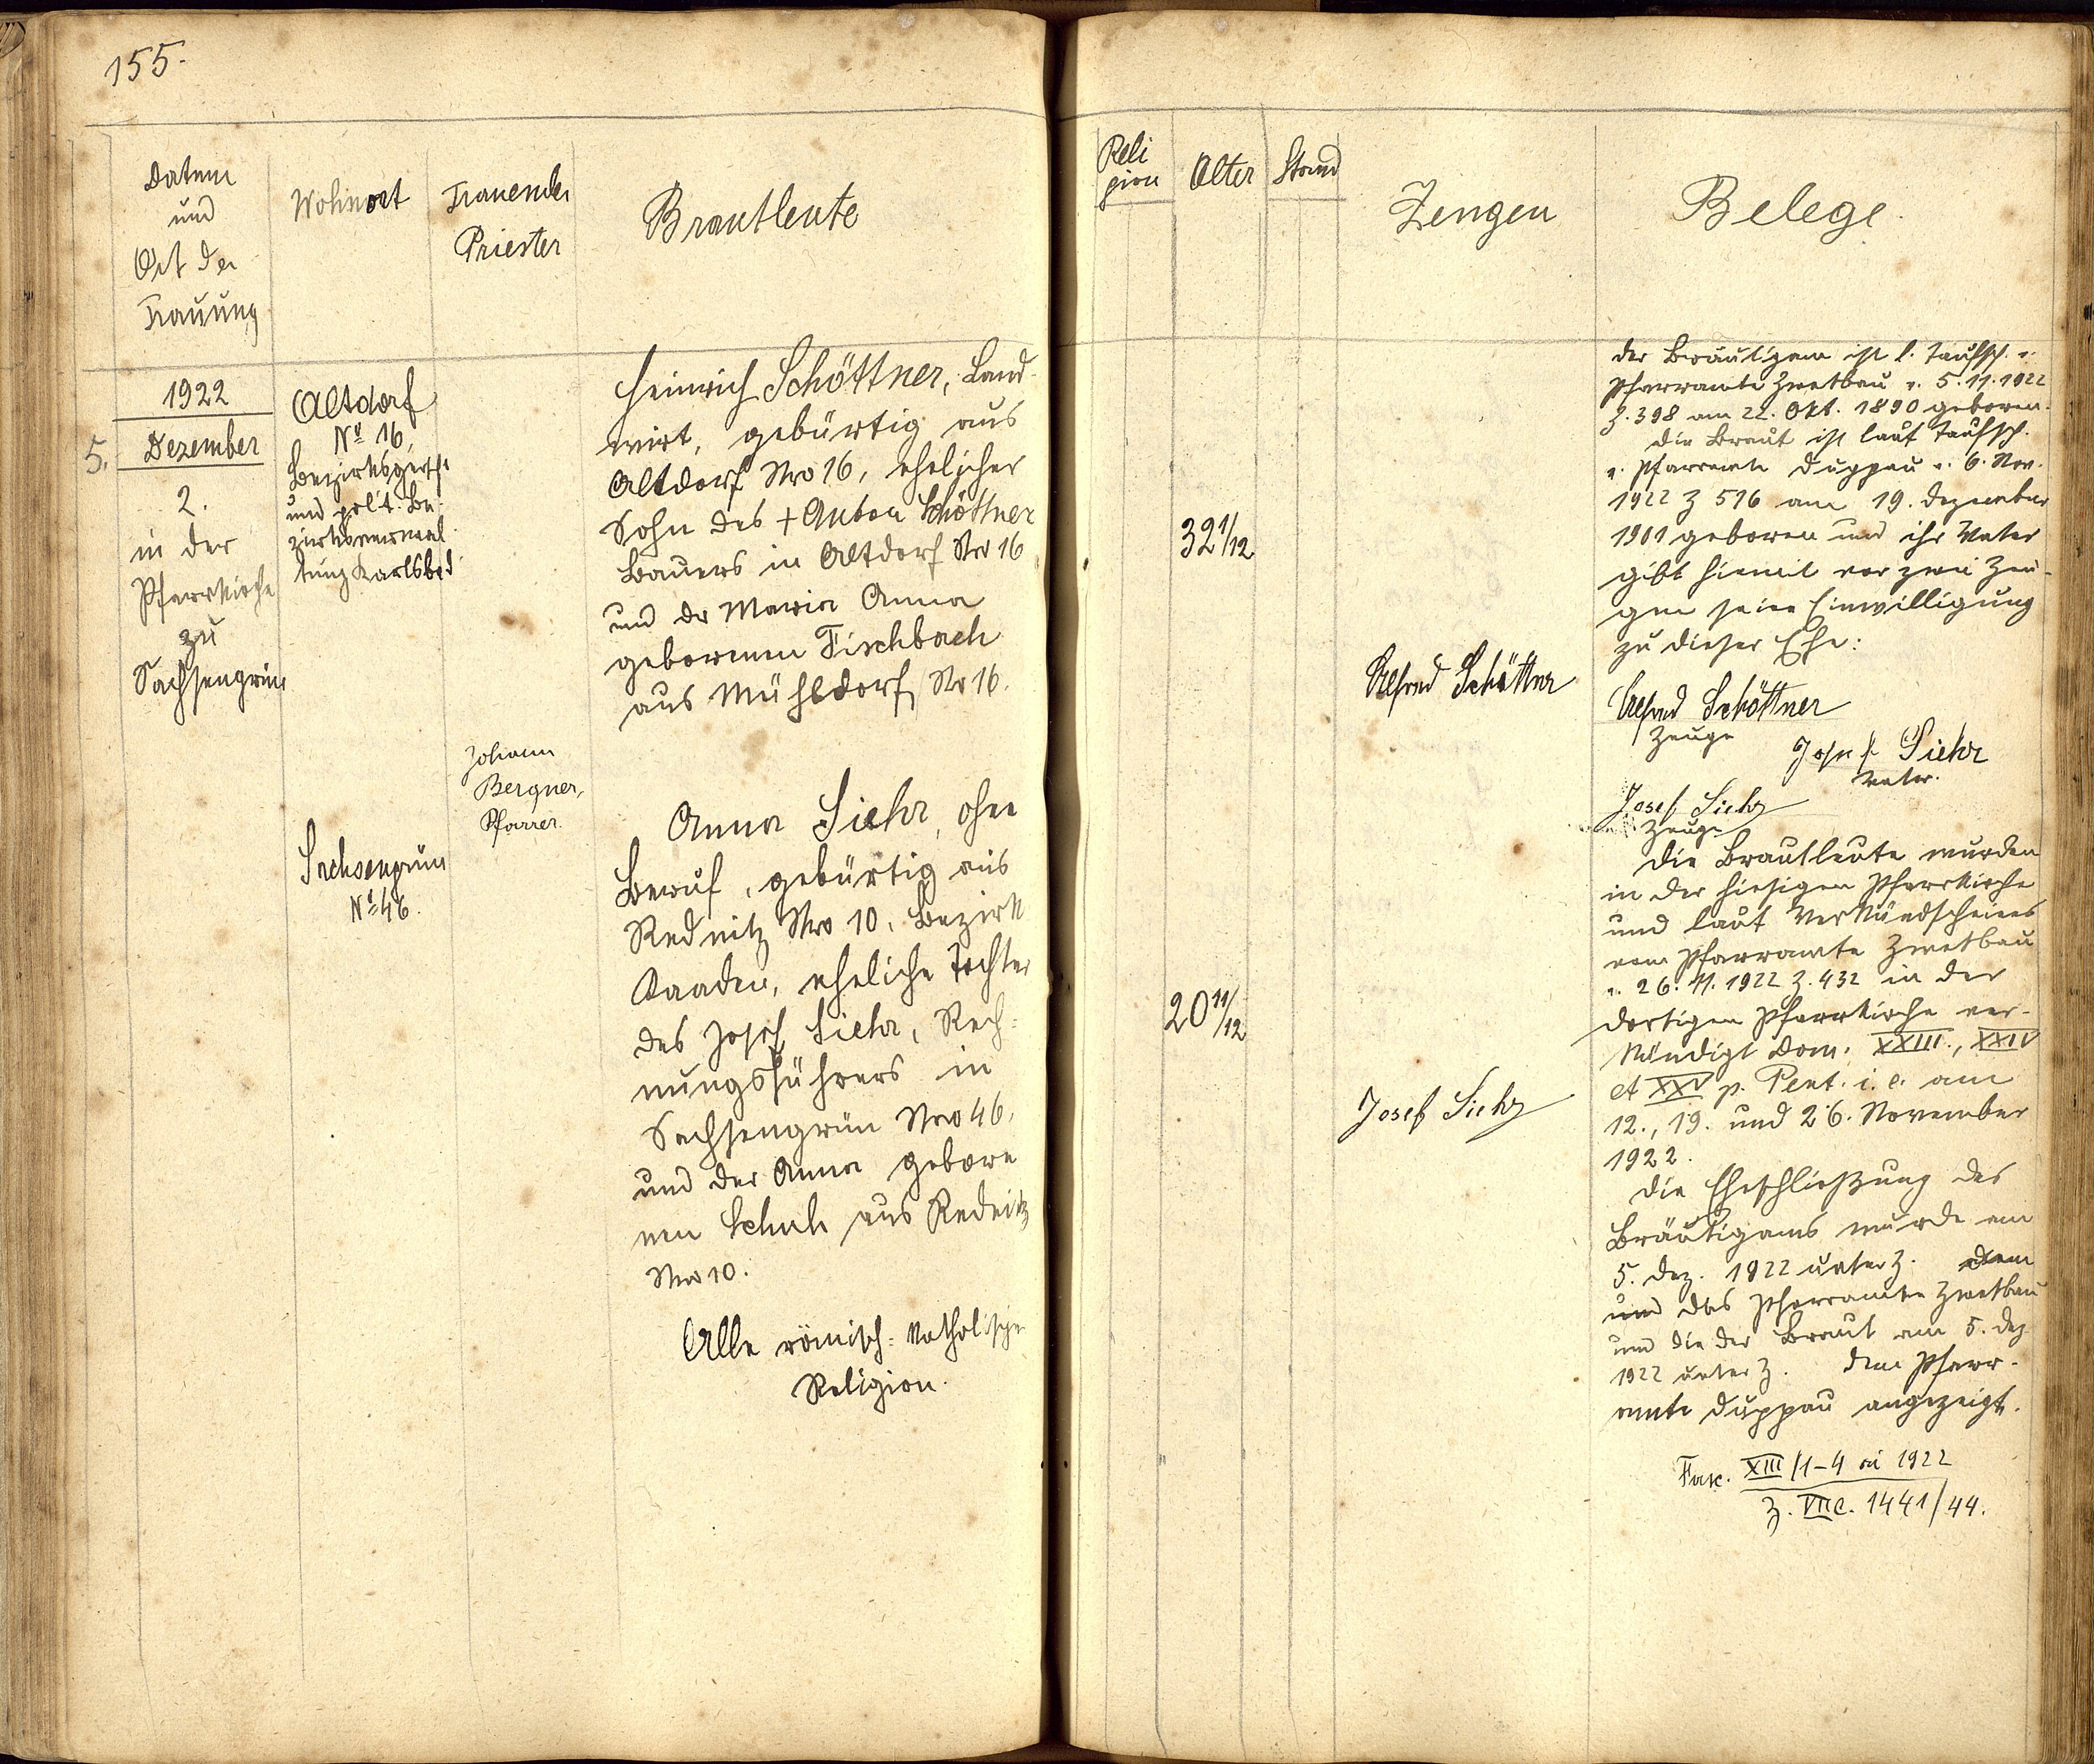 155.
Datum
und
Ort der
Trauung
Wohnort
Trauender
Priester
Brautleute
Reli
gion
Alter
Stand
Zeugen
Belege.
1922
5. Dezember
2.
in der
Pfarrkirche
zu
Sachsengrün
Altdorf
No 16,
Bezirksgericht
und polit. Be-
zirksverwal-
tung Karlsbad
Sachsengrün
No 46.
Johann
Bergner,
Pfarrer.
Heinrich Schöttner, Land-
wirt, gebürtig aus
Altdorf Nro 16, ehelicher
Sohn des + Anton Schöttner
Bauers in Altdorf Nro 16
und der Maria Anna
geborenen Fischbach
aus Mühldorf Nr 16.
Anna Siehr, ohne
Beruf, gebürtig aus
Rednitz Nro 10, Bezirk
Kaaden, eheliche Tochter
des Josef Siehr, Rech-
nungsführers in
Sachsengrün Nro 46,
und der Anna gebore
nen Schuh aus Rednitz
Nro 10.
Alle römisch-katholischer
Religion.
32 1/12
20 11/12
Alfred Schöttner
Josef Siehr
Der Bräutigam ist l. Taufsch. v.
Pfarramte Zwetbau v. 5.11.1922
Z. 398 am 22. Okt. 1890 geboren.
Die Braut ist laut Taufsch.
v. Pfarramte Duppau v. 6. Nov.
1922 Z 516 am 19. Dezember
1901 geboren und ihr Vater
gibt hiemit vor zwei Zeu-
gen seine Einwilligung
zu dieser Ehe:
Alfred Schöttner
Zeuge
Josef Siehr
Vater.
Josef Siehr
Zeuge
Die Brautleute wurden
in der hiesigen Pfarrkirche
und laut Verkündscheines
vom Pfarramte Zwetbau
v. 26.11.1922 Z. 432 in der
dortigen Pfarrkirche ver-
kündigt Dom. XXIII., XXIV
et XXV p. Pent. i. e. am
12., 19. und 26. November
1922.
Die Eheschließung des
Bräutigams wurde am
5. Dez. 1922 unter Z. dem
und das Pfarramte Zwetbau
und die der Braut am 5. Dez
1922 unter Z. dem Pfarr-
amte Duppau angezeigt.
Fasc. XIII/1-4 1922
Z. VII C. 1441/44.